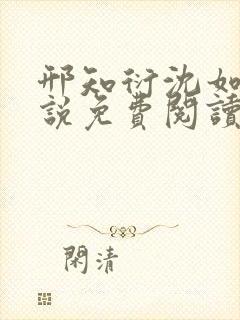 邢知衍沈如
說免費閱讀
閑清